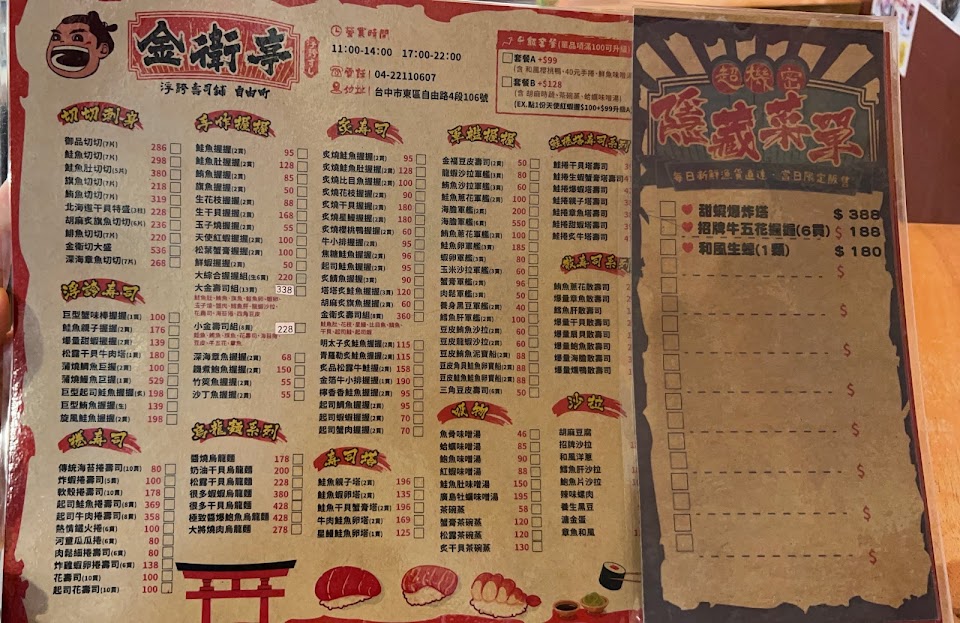 金衛亭
浮誇壽司舖 自由町
營業時間
11:00-14:00 17:00-22:00
電話 04-22110607
地址 台中市東區自由路4段106號
午餐套餐(單品項滿100可升級)
套餐A +$99
(含 和風櫻桃鴨+40元手捲+鮮魚味噌湯
套餐B +$128
(含 胡麻時蔬+茶碗蒸+蛤蠣味噌湯)
(EX.點1份天使紅蝦握$100+$99升級A)
切切刺身
御品切切(7片) 286
鮭魚切切(7片) 298
鮭魚肚切切(5片) 380
旗魚切切(7片) 218
鮪魚切切(7片) 319
北海道干貝特盛(3粒) 228
胡麻炙旗魚切切(6片) 239
鯡魚切切(7片) 220
金衛切大盛 536
深海章魚切切(7片) 268
浮誇壽司
巨型蟹味棒握握(1貫) 100
鮭魚親子握握(2貫) 176
爆量甜蝦握握(2貫) 139
松露干貝牛肉塔(1貫) 180
蒲燒鯛魚巨握(2貫) 100
蒲燒鰻魚巨握(1貫) 529
巨型起司鮭魚握握(炙) 198
巨型鮪魚握握(生) 139
旋風鮭魚握握(2貫) 198
捲壽司
傳統海苔捲壽司(10貫) 80
炸蝦捲壽司(5貫) 100
軟殼捲壽司(10貫) 178
起司鮭魚捲壽司(8貫) 369
起司牛肉捲壽司(8貫) 358
熱情鐵火捲(6貫) 100
河童瓜瓜捲(6貫) 80
肉鬆細捲壽司(6貫) 80
炸雞蝦卵捲壽司(6貫) 138
花壽司(10貫) 100
起司花壽司(10貫) 100
手作握握
鮭魚握握(2貫) 95
鮭魚肚握握(2貫) 128
鮪魚握握(2貫) 85
旗魚握握(2貫) 50
生花枝握握(2貫) 88
生干貝握握(2貫) 168
玉子燒握握(2貫) 55
天使紅蝦握握(2貫) 100
松葉蟹膏握握(2貫) 100
鮮蝦握握(2貫) 50
大綜合握握組(生6貫) 220
大金壽司組(13貫) 338
小金壽司組(8貫) 228
深海章魚握握(2貫) 68
鐵煮鮑魚握握(2貫) 150
竹筴魚握握(2貫) 55
沙丁魚握握(2貫) 55
烏龍麵系列
醬燒烏龍麵 178
奶油干貝烏龍麵 200
松露干貝烏龍麵 228
很多蝦蝦烏龍麵 380
很多干貝烏龍麵 428
極致醬爆鮑魚烏龍麵 428
大將燒肉烏龍麵 278
炙壽司
炙燒鮭魚握握(2貫) 95
炙燒鮭魚肚握握(2貫) 128
炙燒比目魚握握(2貫) 100
炙燒花枝握握(2貫) 90
炙燒干貝握握(2貫) 180
炙燒星鰻握握(2貫) 180
炙燒櫻桃鴨握握(2貫) 60
牛小排握握(2貫) 95
焦糖鮭魚握握(2貫) 98
起司鮭魚握握(2貫) 95
炙鯖魚握握(2貫) 90
塔塔炙鮭魚握握(2貫) 120
胡麻炙旗魚握握(2貫) 60
金衛炙壽司組(8貫) 360
明太子炙鮭魚握握(2貫) 115
青蘿勒炙鮭魚握握(2貫) 115
炙品松露牛鮭(2貫) 158
金箔牛小排握握(1貫) 190
檸香香鮭魚握握(2貫) 95
起司鯛魚握握(2貫) 95
起司蝦蝦握握(2貫) 70
起司蟹肉握握(2貫) 70
壽司塔
鮭魚親子塔(2貫) 196
鮭魚蝦卵塔(2貫) 135
鮭魚干貝蟹膏塔(2貫) 196
牛肉鮭魚卵塔(2貫) 169
星鰻鮭魚卵塔(1貫) 125
軍艦握握
金福豆皮壽司(2貫) 50
龍蝦沙拉軍艦(2貫) 80
鮪魚沙拉軍艦(2貫) 60
鮭魚蔥花軍艦(2貫) 100
海膽軍艦(2貫) 200
海膽軍艦(6貫) 550
鮪魚蔥花軍艦(2貫) 100
鮭魚卵軍艦(3貫) 185
蝦卵軍艦(3貫) 80
玉米沙拉軍艦(3貫) 60
蟹膏軍艦(2貫) 90
肉鬆軍艦(3貫) 50
養身黑豆軍艦(2貫) 40
鱈魚肝軍艦(2貫) 100
豆皮鮪魚沙拉(2貫) 60
豆皮龍蝦沙拉(2貫) 60
豆皮鮪魚泥寶船(2貫) 88
豆皮角貝鮭魚卵寶船(2貫) 88
豆皮鮭魚鮭魚卵寶船(2貫) 88
三角豆皮壽司(6貫) 50
吸物
魚骨味噌湯 46
蛤蠣味噌湯 85
鮑魚味噌湯 90
紅蝦味噌湯 88
鮭魚肚味噌湯 150
廣島牡蠣味噌湯 195
茶碗蒸 58
蟹膏茶碗蒸 120
松露茶碗蒸 120
炙干貝茶碗蒸 130
鮭捲塔壽司系列
鮭捲干貝塔壽司
鮭捲生蝦蟹膏塔壽司
鮭捲爆蝦塔壽司
鮭捲親子塔壽司
鮭捲章魚塔壽司
鮭捲甜蝦塔壽司
鮭捲炙牛塔壽司
散壽司系列
鮪魚蔥花散壽司
爆量章魚散壽司
爆量鮭魚散壽司
爆量干貝散壽司
爆量扇貝散壽司
爆量鮑魚散壽司
爆量海膽散壽司
爆量鴨散壽司
沙拉
胡麻豆腐
招牌沙拉
和風洋蔥
鱈魚肝沙拉
鮑魚片沙拉
辣味螺肉
養生黑豆
滷金蛋
章魚和風
超機密
隱藏菜單
每日新鮮漁貨直達、當日限定販售
甜蝦爆炸塔 $ 388
招牌牛五花握握(6貫) $ 188
和風生蠔(1顆) $ 180
$
$
$
$
$
$
$
$